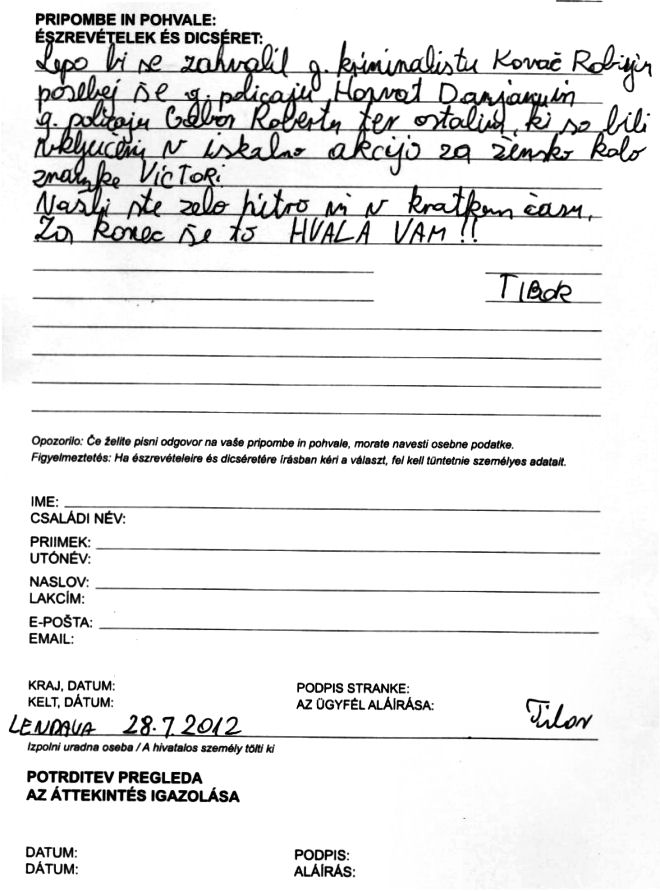 PRIPOMBE IN POHVALE:
ÉSZREVÉTELEK ÉS DICSÉRET:
Lepo bi se zahvalil g. kriminalistu Kovač
posebej še g. policaju Horvat Damjanu in
g. policaju Gabor Robertu ter ostalim, ki so bili
vključeni v iskalno akcijo za žensko kolo
znamke VICTORI.
Našli ste zelo hitro in v kratkem času.
Za konec še to HVALA VAM!!
TIBOR
Opozorilo: Če želite pisni odgovor na vaše pripombe in pohvale, morate navesti osebne podatke.
Figyelmeztetés: Ha észrevételeire és dicséretére írásban kéri a választ, fel kell tüntetnie személyes adatait.
IME:
CSALÁDI NÉV:
PRIIMEK:
UTÓNÉV:
NASLOV:
LAKCÍM:
E-POŠTA:
EMAIL:
KRAJ, DATUM: PODPIS STRANKE:
KELT, DÁTUM: AZ ÜGYFÉL ALÁÍRÁSA:
LENDAVA 28.7.2012 Tibor
Izpolni uradna oseba / A hivatalos személy tölti ki
POTRDITEV PREGLEDA
AZ ÁTTEKINTÉS IGAZOLÁSA
DATUM: PODPIS:
DÁTUM: ALÁÍRÁS: